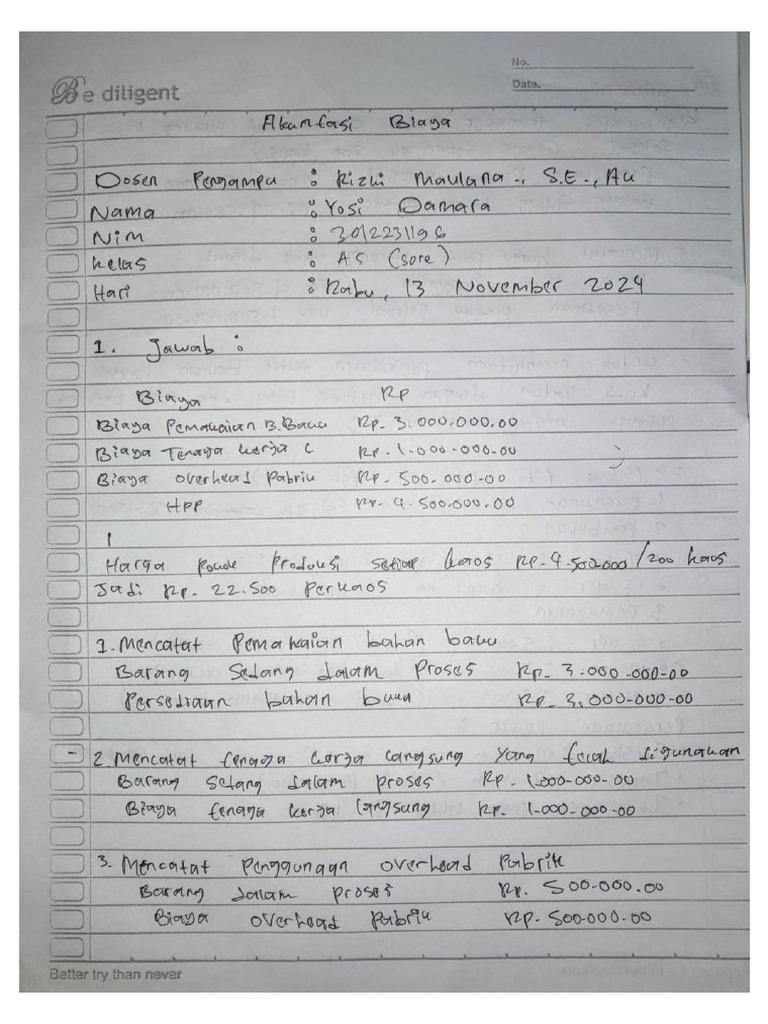 No.
Date.
Be diligent
Akuntasi Biaya
Dosen Pengampu : Rizki Maulana., S.E., Ak
Nama : Yosi Damara
Nim : 3012231196
Kelas : A5 (sore)
Hari : Rabu, 13 November 2024
1. Jawab :
Biaya Rp
Biaya Pemakaian B. Baku Rp. 3.000.000.00
Biaya Tenaga kerja L Rp. 1.000.000.00
Biaya overhead Pabrik Rp. 500.000.00
HPP Rp. 4.500.000.00
Harga Pokok Produksi setiap kaos Rp. 4.500.000/200 kaos
Jadi Rp. 22.500 Perkaos
1. Mencatat Pemakaian bahan baku
Barang Sedang dalam Proses Rp. 3.000.000.00
Persediaan bahan baku Rp. 3.000.000.00
2. Mencatat tenaga kerja langsung yang telah digunakan
Barang sedang dalam proses Rp. 1.000.000.00
Biaya tenaga kerja langsung Rp. 1.000.000.00
3. Mencatat Penggunaan overhead Pabrik
Barang dalam proses Rp. 500.000.00
Biaya overhead Pabrik Rp. 500.000.00
Better try than never